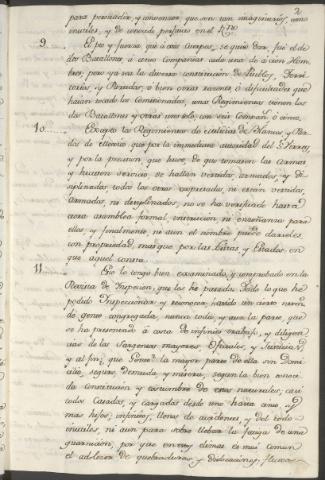 2
para persuadir, y convencer que son tan imaginarios, como
inutiles, y de ninguna
9. El pie y fuerza que á éstos Cuerpos, se quiso dar, fué el de
dos Batallones á cinco Compañias cada uno de á cien Hom-
bres, pero ya la diversa constitucion de Pueblos, Terri-
torios, y Partidos, ó bien otras razones ó dificultades que
hayan tenido los Comisionados, unos Regimientos tienen los
dos Batallones y otros uno solo, con seis Compañias, ó cinco.
10. Excepto los Regimientos de Milicias de Blancos, y Par-
dos de Merida que por la inmediata autoridad del
y por la precision, que hubo, de que tomaran las Armas
y hicieran servicio, se hallan vestidos, armados, y di-
ciplinados, todos los otros expresados, ni están vestidos,
Armados, ni disciplinados, no se ha verificado hasta
ahora asamblea formal, instruccion, ni enseñanza para
ellos, y finalmente, ni aun el nombre puede darseles
con propiedad, mas que por las Listas, y Estados, en
que aquel consta.
11. Esto lo tengo bien examinado, y comprobado en la
Revista de Inspeccion, que les he pasado. Todo lo que he
podido Inspeccionar y reconocer, ha sido un cierto numero
de gente congregada, nunca toda, y aun la parte, que
se ha presentado á costa de infinito trabajo, y diligen-
cias de los Sargentos mayores Oficiales, y Justicias
y al fin, que Gente? la mayor parte de ella sin Domi-
cilio, seguro, desnuda, y misera, segun la bien conoci-
da Constitucion y costumbre de estos naturales, casi
todos Casados, y cargados desde uno hasta cinco y
mas hijos, infelices, llenos de accidentes y del todo
inutiles, ni aun para sobre llevar la fatiga de una
guarnicion, por que en este clima es mui comun
el adolecer de quebraduras, y